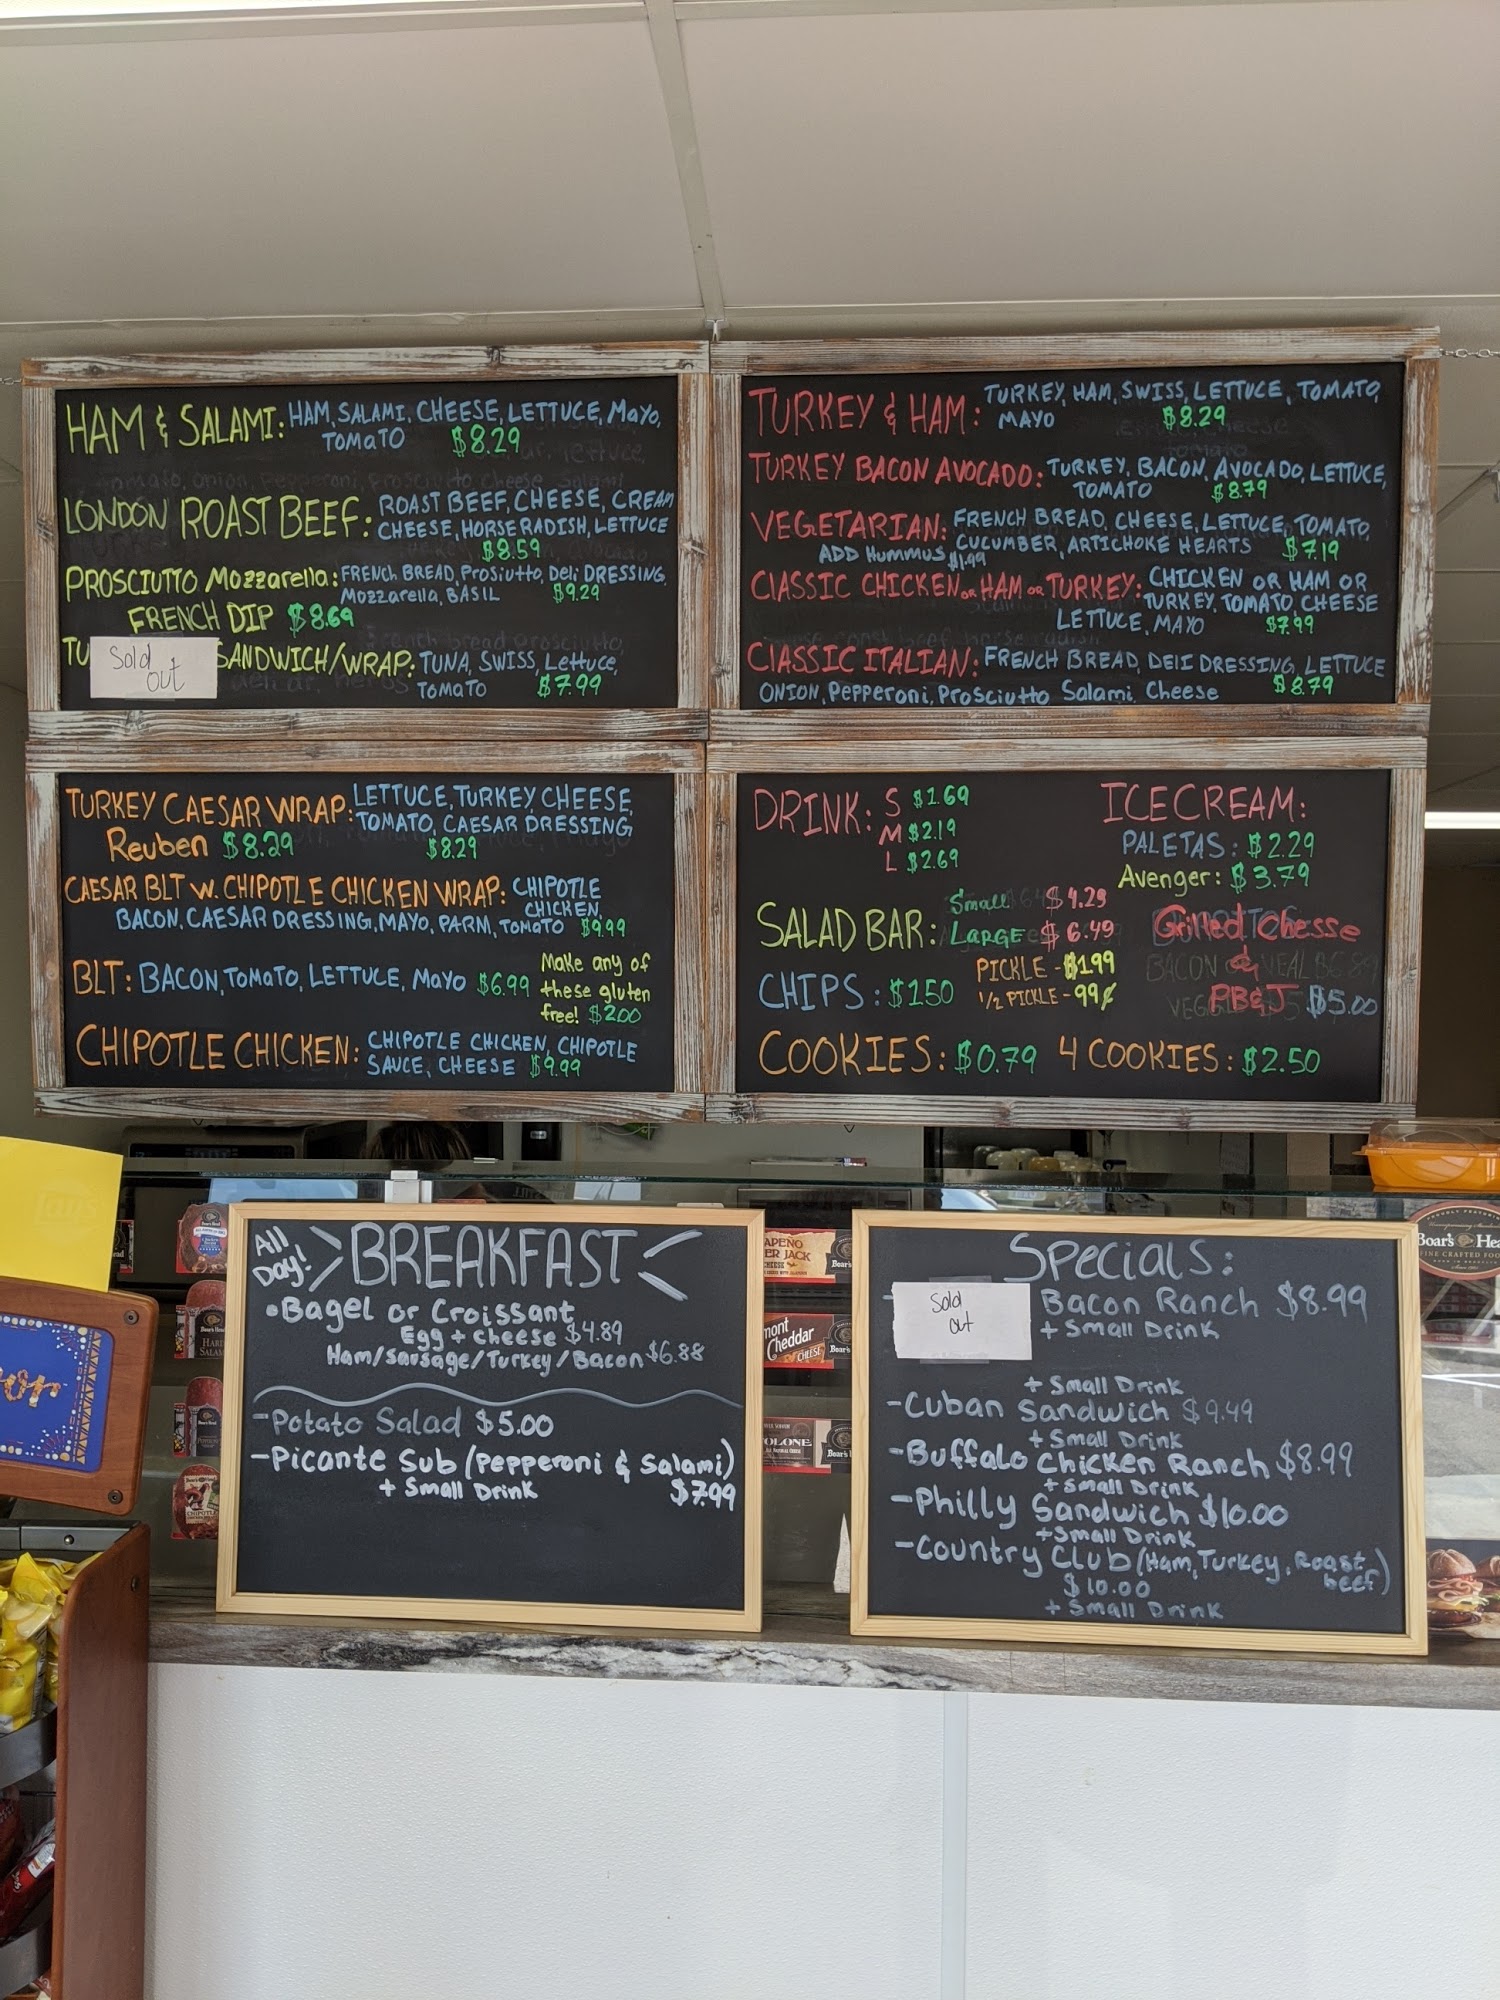 HAM & SALAMI: HAM, SALAMI, CHEESE, LETTUCE, MAYO,
TOMATO $8.29
LONDON ROAST BEEF: ROAST BEEF, CHEESE, CREAM
CHEESE, HORSERADISH, LETTUCE
$8.59
PROSCIUTTO Mozzarella: FRENCH BREAD, Prosiutto, Deli DRESSING,
Mozzarella, BASIL $9.29
FRENCH DIP $8.69
TU SANDWICH/WRAP: TUNA, SWISS, Lettuce,
TOMATO $7.99
Sold
out
TURKEY & HAM: TURKEY, HAM, SWISS, LETTUCE, TOMATO,
MAYO $8.29
TURKEY BACON AVOCADO: TURKEY, BACON, AVOCADO, LETTUCE,
TOMATO $8.79
VEGETARIAN: FRENCH BREAD, CHEESE, LETTUCE, TOMATO,
CUCUMBER, ARTICHOKE HEARTS $7.19
ADD Hummus $1.99
CLASSIC CHICKEN OR HAM OR TURKEY: CHICKEN OR HAM OR
TURKEY, TOMATO, CHEESE
LETTUCE, MAYO $7.99
CLASSIC ITALIAN: FRENCH BREAD, DELI DRESSING, LETTUCE
ONION, Pepperoni, Prosciutto Salami, Cheese $8.79
TURKEY CAESAR WRAP: LETTUCE, TURKEY, CHEESE,
TOMATO, CAESAR DRESSING
Reuben $8.29 $8.29
CAESAR BLT w. CHIPOTLE CHICKEN WRAP: CHIPOTLE
CHICKEN,
BACON, CAESAR DRESSING, MAYO, PARM, TOMATO $9.99
BLT: BACON, TOMATO, LETTUCE, MAYO $6.99
Make any of
these gluten
free! $2.00
CHIPOTLE CHICKEN: CHIPOTLE CHICKEN, CHIPOTLE
SAUCE, CHEESE $9.99
DRINK: S $1.69
M $2.19
L $2.69
ICECREAM:
PALETAS: $2.29
Avenger: $3.79
SALAD BAR: Small $4.29
LARGE $6.49
Grilled Chesse
&
PB&J $5.00
PICKLE - $1.99
1/2 PICKLE - 99¢
CHIPS: $1.50
COOKIES: $0.79 4 COOKIES: $2.50
All
Day!
BREAKFAST
•Bagel or Croissant
Egg + cheese $4.89
Ham/sausage/Turkey/Bacon $6.88
-Potato Salad $5.00
-Picante Sub (Pepperoni & Salami)
+ Small Drink $7.99
Specials:
Sold
out
Bacon Ranch $8.99
+ Small Drink
+ Small Drink
-Cuban Sandwich $9.49
+ Small Drink
-Buffalo Chicken Ranch $8.99
+ Small Drink
-Philly Sandwich $10.00
+ Small Drink
-Country Club (Ham, Turkey, Roast
beef)
$10.00
+ Small Drink